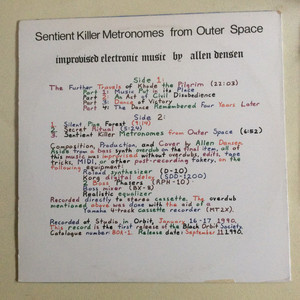 Sentient Killer Metronomes from Outer Space
improvised electronic music by allen densen
Side 1:
The Further Travels of Khude the Pilgrim (22:03)
Part 1: Music Put in its Place
Part 2: An Act of Civil Disobedience
Part 3: Dance of Victory
Part 4: The Dance Remembered Four Years Later
Side 2:
1. Silent Pine Forest (9:14)
2. Secret Ritual (5:24)
3. Sentient Killer Metronomes from Outer Space (6:52)
Composition, Production, and Cover by Allen Densen
Aside from a bass synth overdub on the final item, all of
this music was improvised without overdubs, edits, tape
tricks, MIDI, or other post-recording fakery, on the
following equipment:
Roland synthesizer (D-20)
Korg digital delay (SDD-1200)
2 Boss Phasers (RPH-10)
Boss mixer (BX-8)
Realistic equalizer
Recorded directly to stereo cassette. The overdub
mentioned above was done with the aid of a
Yamaha 4-track cassette recorder (MT2X).
Recorded at Studio in Orbit, January 16-17 1990.
This record is the first release of the Block Orbit Society.
Catalogue number: BOS-1. Release date: September 11 1990.